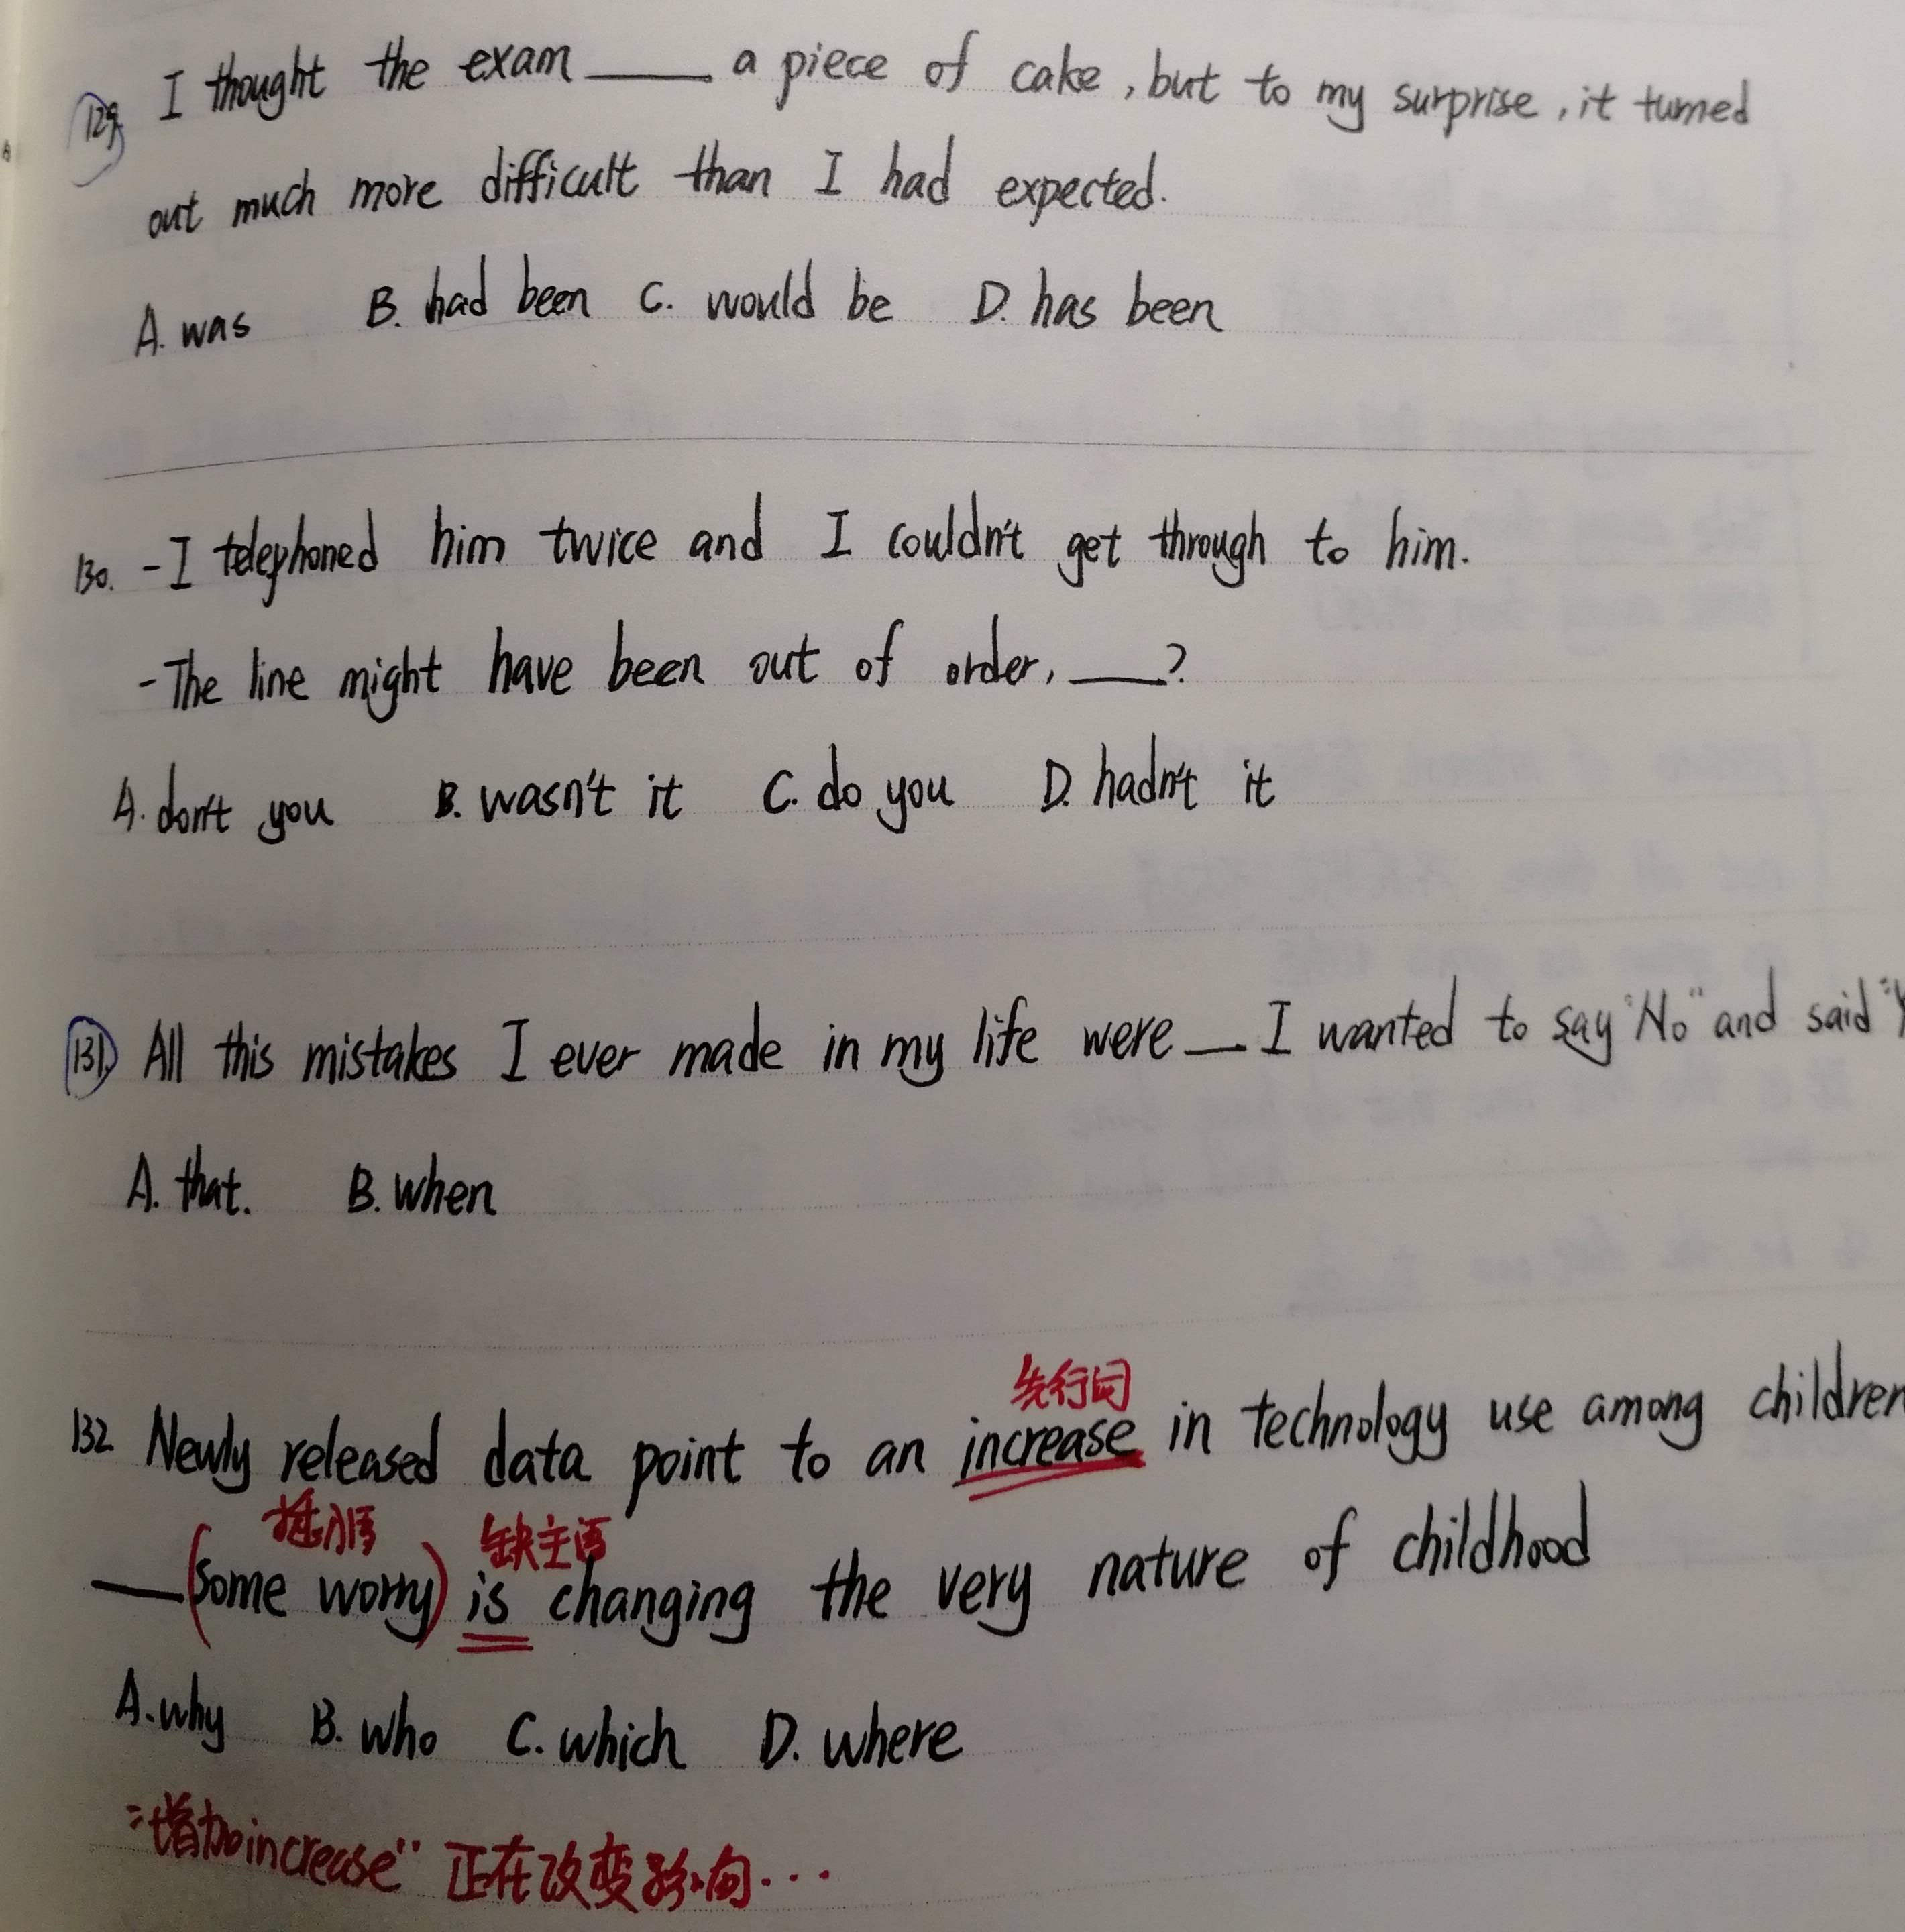 129. I thought the exam ____ a piece of cake, but to my surprise, it turned
out much more difficult than I had expected.
A. was B. had been C. would be D. has been
130. -I telephoned him twice and I couldn't get through to him.
-The line might have been out of order, ____?
A. don't you B. wasn't it C. do you D. hadn't it
131. All this mistakes I ever made in my life were __ I wanted to say "No" and said "Y
A. that. B. when
先行词
132. Newly released data point to an increase in technology use among children
插入语 缺主语
____ (some worry) is changing the very nature of childhood
A. why B. who C. which D. where
"增加increase" 正在改变